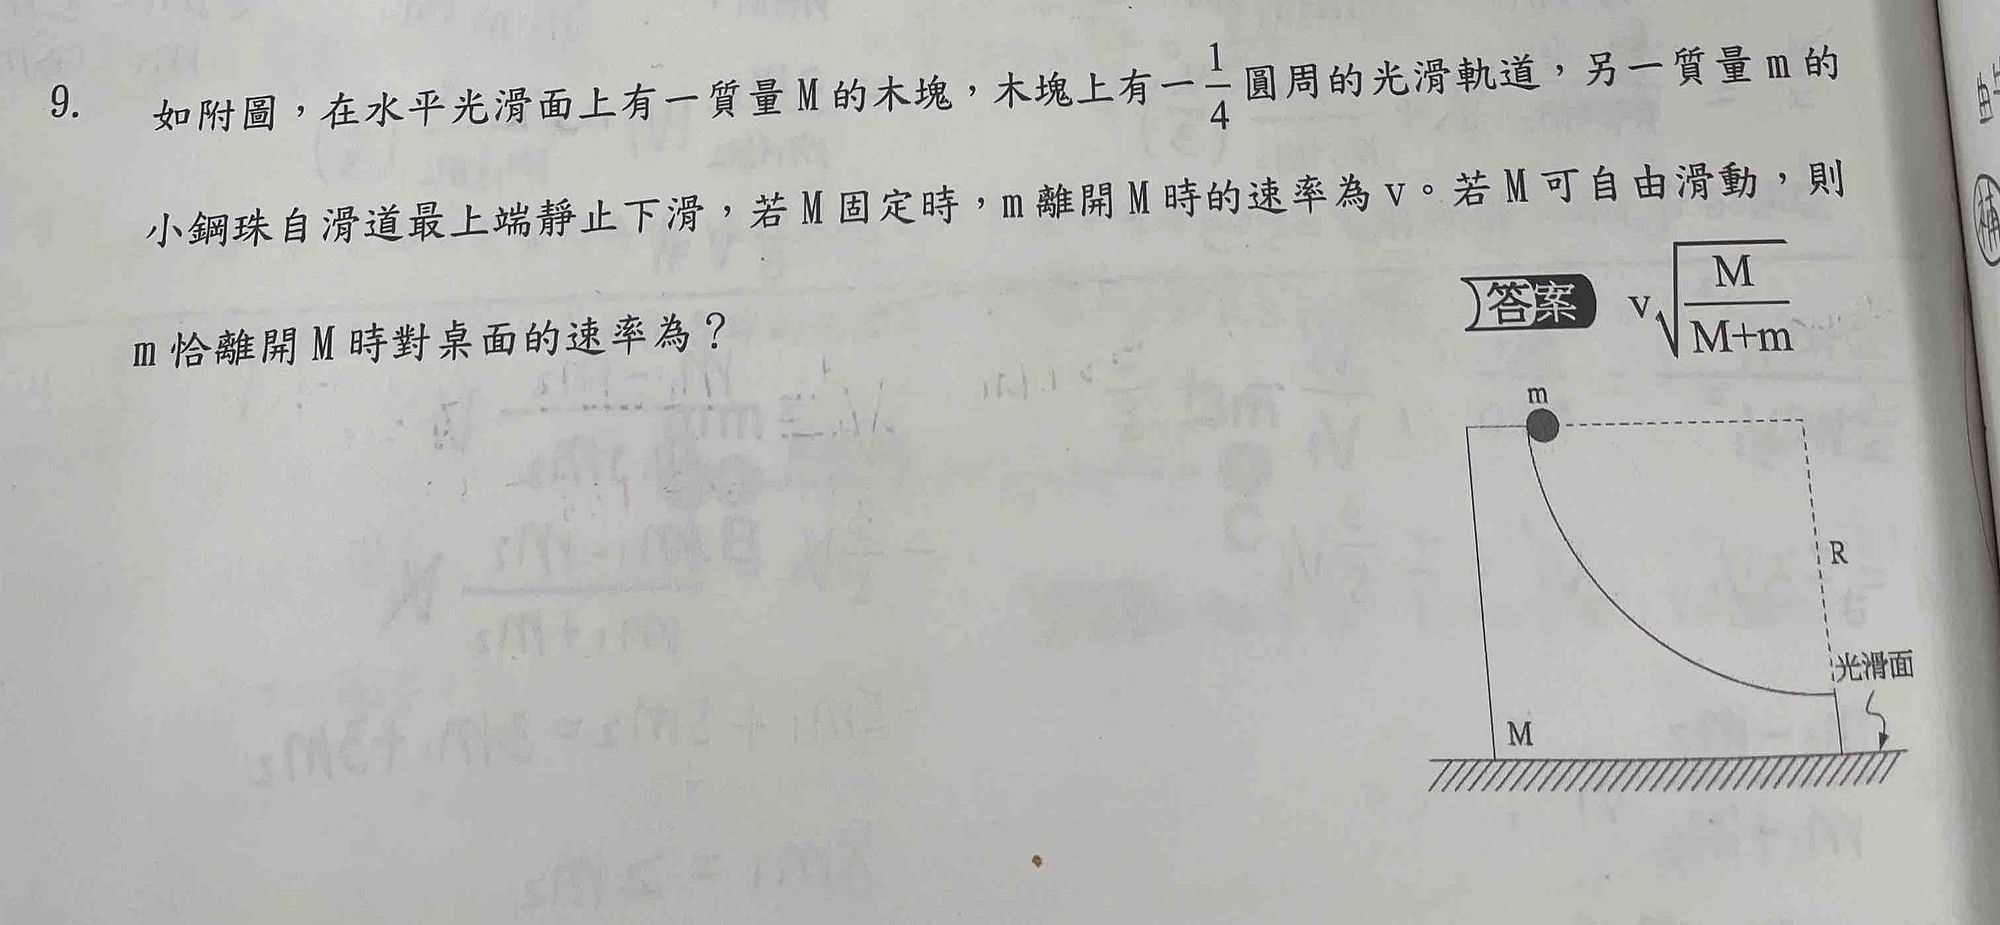 9. 如附圖，在水平光滑面上有一質量 M 的木塊，木塊上有一 1/4 圓周的光滑軌道，另一質量 m 的
小鋼珠自滑道最上端靜止下滑，若 M 固定時，m 離開 M 時的速率為 v。若 M 可自由滑動，則
m 恰離開 M 時對桌面的速率為？
答案 v√(M/(M+m))
m
R
光滑面
M